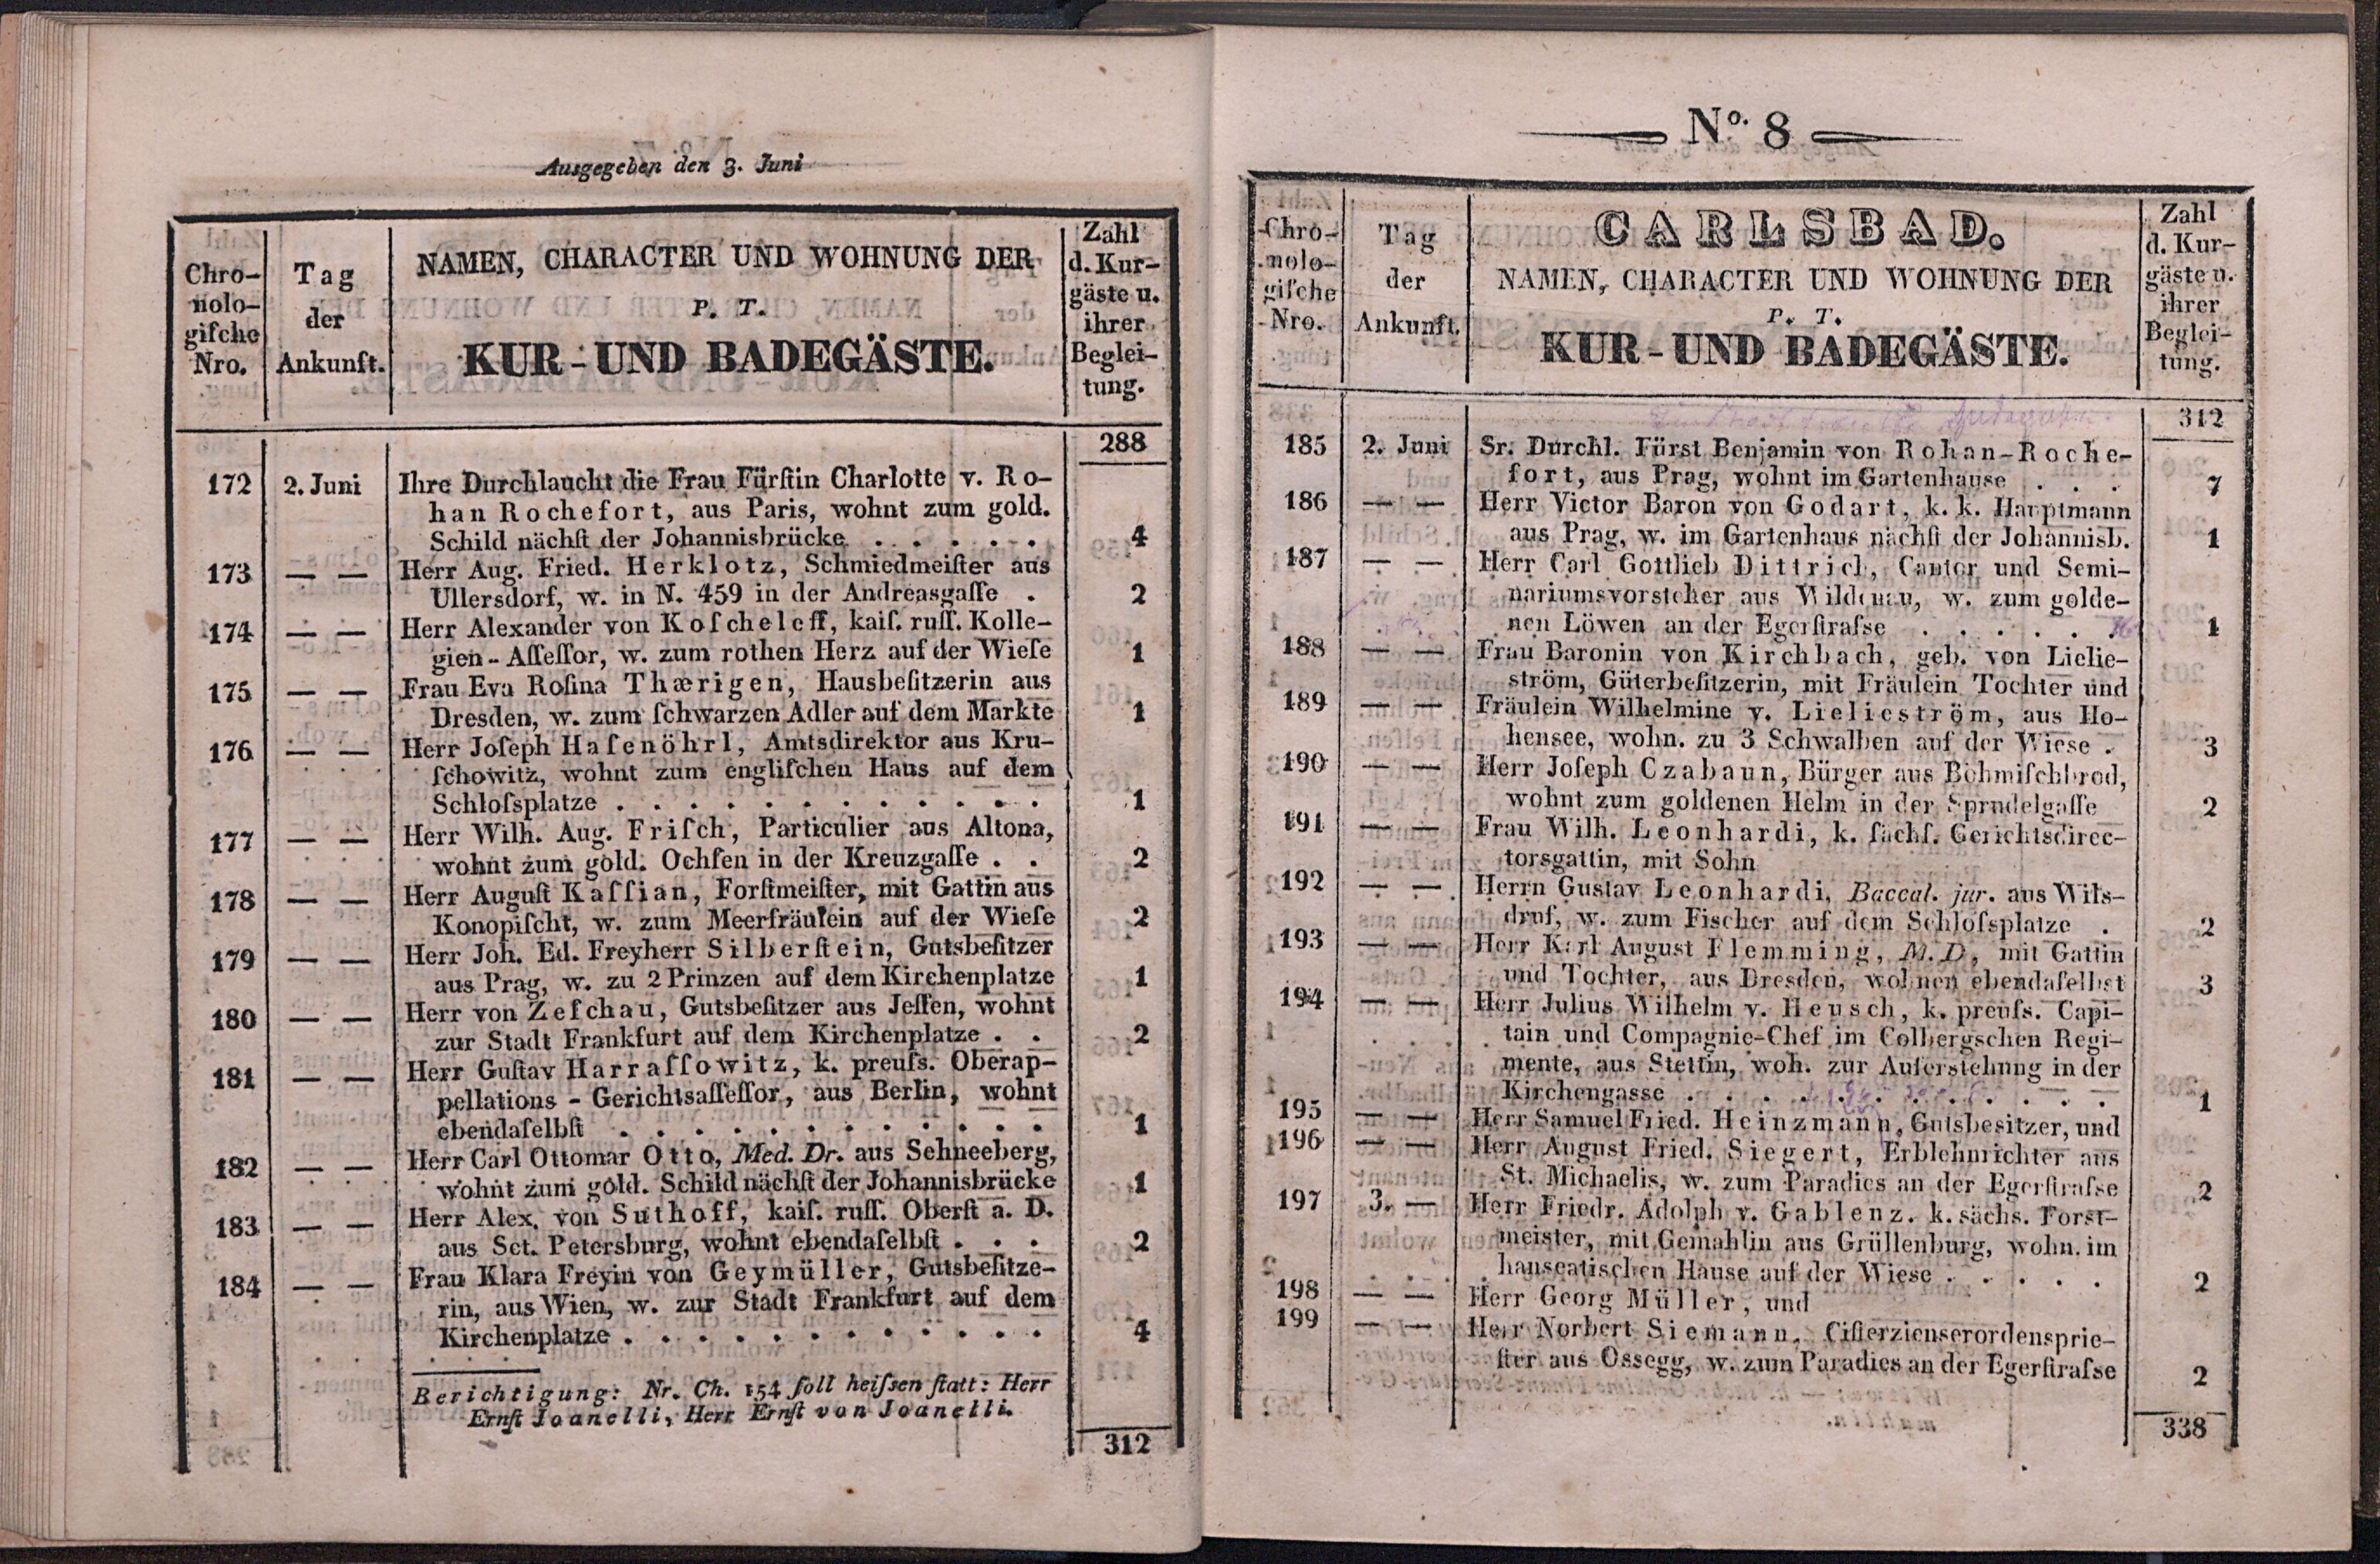 Ausgegeben den 3. Juni
Chro-
nolo-
giſche
Nro.
Tag
der
Ankunft.
NAMEN, CHARACTER UND WOHNUNG DER
P. T.
KUR-UND BADEGÄSTE.
Zahl
d. Kur-
gäste u.
ihrer
Beglei-
tung.
288
172 2. Juni Ihre Durchlaucht die Frau Fürſtin Charlotte v. Ro-
han Rochefort, aus Paris, wohnt zum gold.
Schild nächſt der Johannisbrücke . . . . . . 4
173 — — Herr Aug. Fried. Herklotz, Schmiedmeiſter aus
Ullersdorf, w. in N. 459 in der Andreasgaſſe . 2
174 — — Herr Alexander von Koſcheleff, kaiſ. ruſſ. Kolle-
gien-Aſſeſſor, w. zum rothen Herz auf der Wieſe 1
175 — — Frau Eva Roſina Thærigen, Hausbeſitzerin aus
Dresden, w. zum ſchwarzen Adler auf dem Markte 1
176 — — Herr Joſeph Haſenöhrl, Amtsdirektor aus Kru-
ſchowitz, wohnt zum engliſchen Haus auf dem
Schloſsplatze . . . . . . . . . . . . 1
177 — — Herr Wilh. Aug. Friſch, Particulier aus Altona,
wohnt zum gold. Ochſen in der Kreuzgaſſe . . 2
178 — — Herr Auguſt Kaſſian, Forſtmeiſter, mit Gattin aus
Konopiſcht, w. zum Meerfräulein auf der Wieſe 2
179 — — Herr Joh. Ed. Freyherr Silberſtein, Gutsbeſitzer
aus Prag, w. zu 2 Prinzen auf dem Kirchenplatze 1
180 — — Herr von Zeſchau, Gutsbeſitzer aus Jeſſen, wohnt
zur Stadt Frankfurt auf dem Kirchenplatze . . 2
181 — — Herr Guſtav Harraſſowitz, k. preuſs. Oberap-
pellations-Gerichtsaſſeſſor, aus Berlin, wohnt
ebendaſelbſt . . . . . . . . . . . . 1
182 — — Herr Carl Ottomar Otto, Med. Dr. aus Schneeberg,
wohnt zum gold. Schild nächſt der Johannisbrücke 1
183 — — Herr Alex. von Suthoff, kaiſ. ruſſ. Oberſt a. D.
aus Sct. Petersburg, wohnt ebendaſelbſt . . . 2
184 — — Frau Klara Freyin von Geymüller, Gutsbeſitze-
rin, aus Wien, w. zur Stadt Frankfurt auf dem
Kirchenplatze . . . . . . . . . . . . 4
Berichtigung: Nr. Ch. 154 ſoll heiſsen ſtatt: Herr
Ernſt Joanelli, Herr Ernſt von Joanelli.
312
No. 8
Chro-
nolo-
giſche
Nro.
Tag
der
Ankunft.
CARLSBAD.
NAMEN, CHARACTER UND WOHNUNG DER
P. T.
KUR-UND BADEGÄSTE.
Zahl
d. Kur-
gäste u.
ihrer
Beglei-
tung.
312
185 2. Juni Sr. Durchl. Fürst Benjamin von Rohan-Roche-
fort, aus Prag, wohnt im Gartenhause . . . 7
186 — — Herr Victor Baron von Godart, k. k. Hauptmann
aus Prag, w. im Gartenhaus nächſt der Johannisb. 1
187 — — Herr Carl Gottlieb Dittrich, Cantor und Semi-
nariumsvorsteher aus Wildenau, w. zum golde-
nen Löwen an der Egerſtraſse . . . . . . 1
188 — — Frau Baronin von Kirchbach, geb. von Lielie-
ström, Güterbeſitzerin, mit Fräulein Tochter und
189 — — Fräulein Wilhelmine v. Lielieström, aus Ho-
hensee, wohn. zu 3 Schwalben auf der Wiese . 3
190 — — Herr Joſeph Czabaun, Bürger aus Böhmiſchbrod,
wohnt zum goldenen Helm in der Sprudelgaſſe 2
191 — — Frau Wilh. Leonhardi, k. ſächſ. Gerichtsdirec-
torsgattin, mit Sohn
192 — — Herrn Gustav Leonhardi, Baccal. jur. aus Wils-
druf, w. zum Fischer auf dem Schloſsplatze . 2
193 — — Herr Karl August Flemming, M. D, mit Gattin
und Tochter, aus Dresden, wohnen ebendaſelbst 3
194 — — Herr Julius Wilhelm v. Heusch, k. preuſs. Capi-
tain und Compagnie-Chef im Colbergschen Regi-
mente, aus Stettin, woh. zur Auferstehung in der
Kirchengasse . . . . . . . . . . . . 1
195 — — Herr Samuel Fried. Heinzmann, Gutsbesitzer, und
196 — — Herr August Fried. Siegert, Erblehnrichter aus
St. Michaelis, w. zum Paradies an der Egerſtraſse 2
197 3. — Herr Friedr. Adolph v. Gablenz. k. sächs. Forst-
meister, mit Gemahlin aus Grüllenburg, wohn. im
hanseatischen Hause auf der Wiese . . . . . 2
198 — — Herr Georg Müller, und
199 — — Herr Norbert Siemann, Ciſterzienserordensprie-
ſter aus Ossegg, w. zum Paradies an der Egerſtraſse 2
338